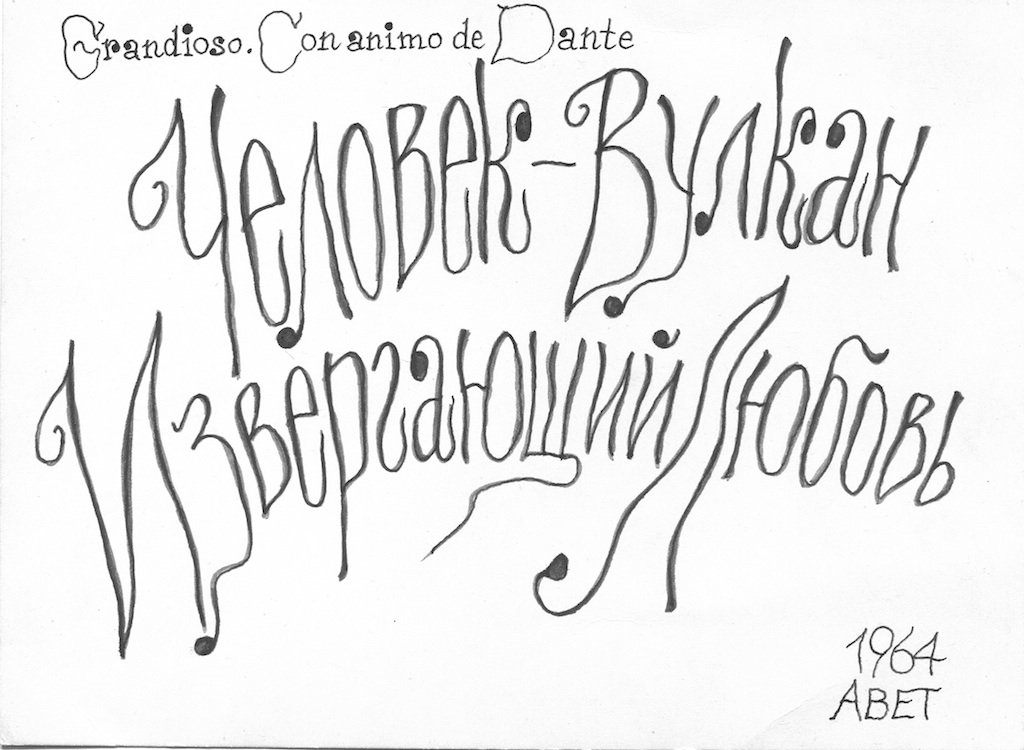 Grandioso. Con animo de Dante
Человек-Вулкан
Извергающий Любовь
1964
АВЕТ